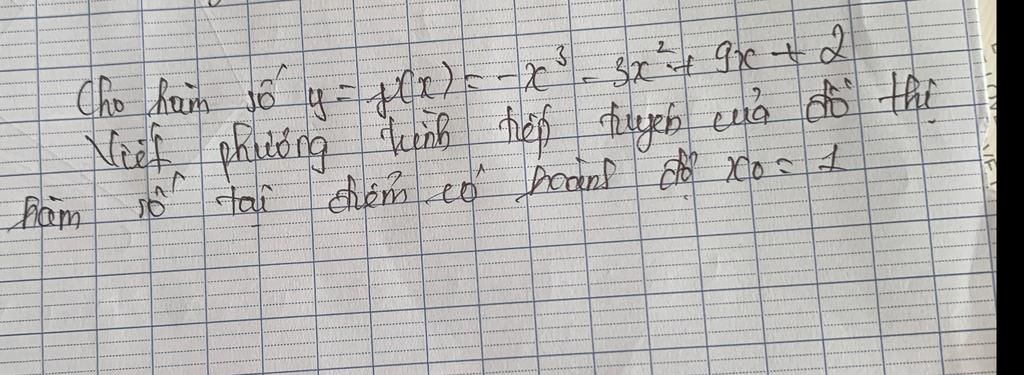 Cho hàm số y = f(x) = -x³ - 3x² + 9x + 2
Viết phương trình tiếp tuyến của đồ thị
hàm số tại điểm có hoành độ x0 = 1